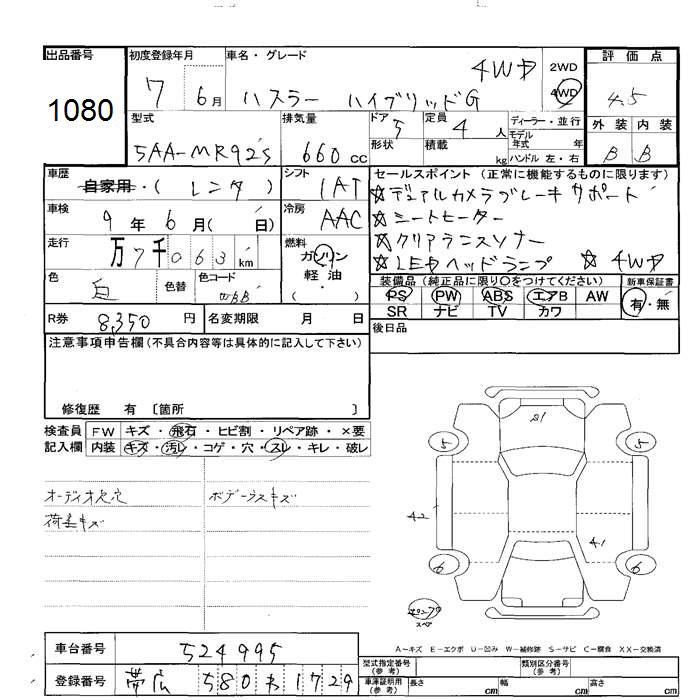 出品番号
1080
初度登録年月
7 6月
車名・グレード
4WD
ハスラー ハイブリッドG
2WD
4WD
評価点
4.5
外装 内装
B B
型式
5AA-MR92S
排気量
660 CC
ドア
5
定員
4 人
形状
積載
kg
ディーラー・並行
モデル
年式 年
ハンドル 左・右
車歴
自家用・( レンタ )
シフト
IAT
車検
9 年 6 月( 日)
冷房
AAC
走行
万7千063km
燃料
ガソリン
軽油
( ・ )
色
白
色替
色コード
R券
8,350 円
名変期限 月 日
セールスポイント(正常に機能するものに限ります)
☆デュアルカメラブレーキサポート
☆シートヒーター
☆クリアランスソナー
☆LEDヘッドランプ ☆4WD
装備品(純正品に限り○をつけてください)
新車保証書
PS PW ABS エアB AW
有・無
SR ナビ TV カワ
後日品
注意事項申告欄(不具合内容等は具体的に記入して下さい)
修復歴 有〔箇所 〕
検査員
記入欄
FW キズ・飛石・ヒビ割・リペア跡・×要
内装 キズ・汚レ・コゲ・穴・スレ・キレ・破レ
オーディオ欠穴
ボデーラスキズ
荷室キズ
21
5 5
42
41
6 6
スペア
A-キズ E-エクボ U-凹み W-補修跡 S-サビ C-腐食 XX-交換済
車台番号
524995
登録番号
帯広 580 1729
型式指定番号
(参考)
類別区分番号
(参考)
車庫証明用
(参考)
長さ cm 幅 cm 高さ cm